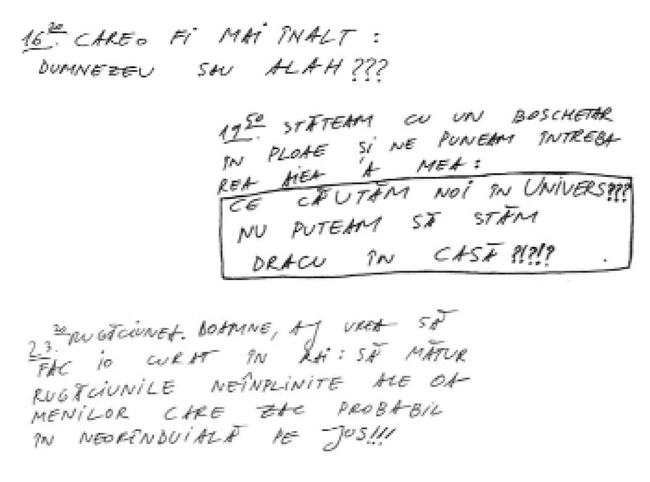 16²⁰. CARE O FI MAI ÎNALT :
DUMNEZEU SAU ALAH ???
19⁵⁰. STĂTEAM CU UN BOSCHETAR
ÎN PLOAE ȘI NE PUNEAM ÎNTREBA
REA AIEA A MEA :
CE CĂUTĂM NOI ÎN UNIVERS???
NU PUTEAM SĂ STĂM
DRACU ÎN CASĂ ?!?!? .
23²⁰ RUGĂCIUNEA. DOAMNE, AȘ VREA SĂ
FAC IO CURAT ÎN RAI : SĂ MĂTUR
RUGĂCIUNILE NEÎNPLINITE ALE OA-
MENILOR CARE ZAC PROBABIL
ÎN NEORÎNDUIALĂ PE JOS!!!